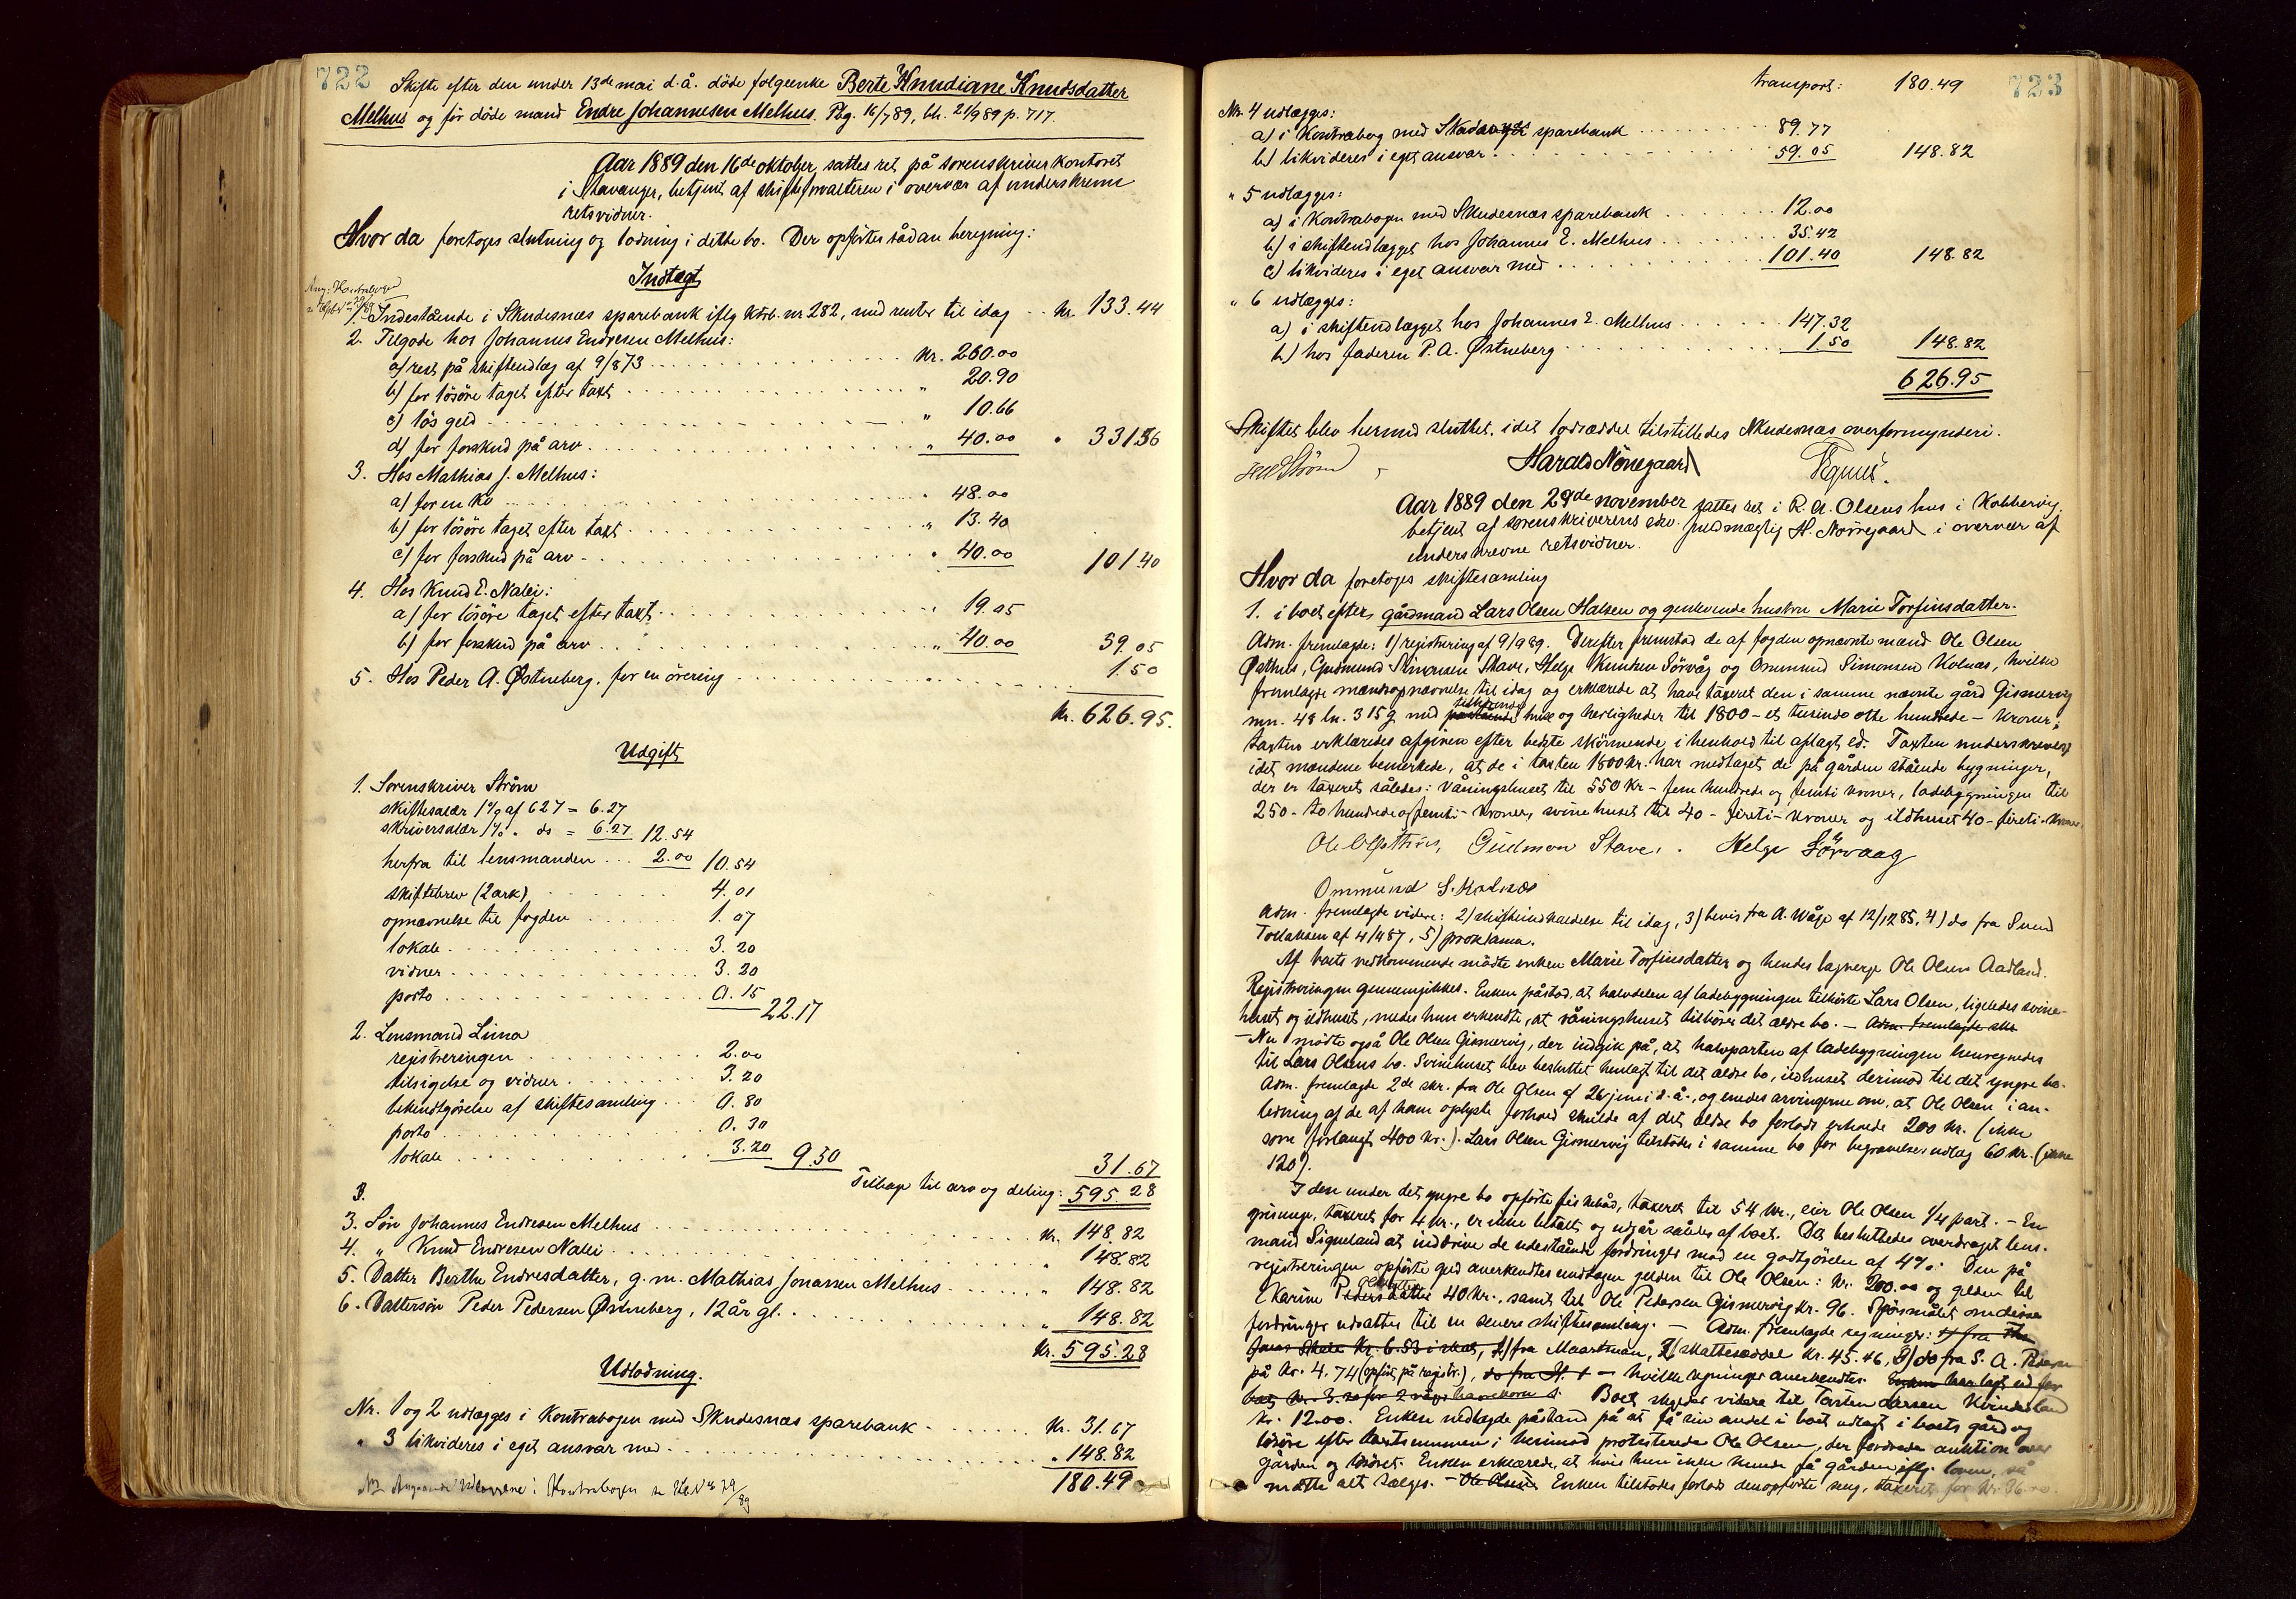 722
Skifte efter den under 13de mai d.å. döde folgeenke Berte Knudiane Knudsdatter
Melhus og för döde mand Endre Johannesen Melhus. Reg. 16/7 89, bh. 21/9 89 p. 717.
Aar 1889 den 16de oktober, sattes ret på sorenskriverkontoret
i Stavanger, betjent af skifteforvalteren i overvær af underskrevne
retsvidner.
Hvor da foretoges slutning og lodning i dette bo. Der opförtes sådan beregning:
Indtægt
Ang. Kontrabogen
1. Indestående i Skudesnæs sparebank iflg ktrb. nr 282, med renter til idag .. kr. 133.44
2. Tilgode hos Johannes Endresen Melhus:
a) rest på skifteudlæg af 9/8 73 ... kr. 260.00
b) for lösöre taget efter taxt ... " 20.90
c) lös gjeld ... " 10.66
d) for forskud på arv ... " 40.00 " 331.56
3. Hos Mathias J. Melhus:
a) for en ko ... " 48.00
b) for lösöre taget efter taxt ... " 13.40
c) for forskud på arv ... " 40.00 101.40
4. Hos Knud E. Nalei:
a) for lösöre taget efter taxt ... " 19.05
b) for forskud på arv ... " 40.00 59.05
5. Hos Peder A. Østneberg, for en örering ... 1.50
kr. 626.95.
Udgift
1. Sorenskriver Ström
skiftesalær 1% af 627 = 6.27
skriversalær 1% " do = 6.27 12.54
herfra til lensmanden ... 2.00 10.54
skiftebrev (2 ark) ... 4.01
opnævnelse til fogden ... 1.07
lokale ... 3.20
vidner ... 3.20
porto ... 0.15 22.17
2. Lensmand Lima
registreringen ... 2.00
tilsigelse og vidner ... 3.20
bekendtgörelse af skiftesamling ... 0.80
porto ... 0.30
lokale ... 3.20 9.50 31.67
Tilbage til arv og deling: 595.28
3.
3. Sön Johannes Endresen Melhus ... kr. 148.82
4. " Knud Endresen Nalei ... " 148.82
5. Datter Berthe Endresdatter, g.m. Mathias Jonassen Melhus ... " 148.82
6. Dattersön Peder Pedersen Østneberg, 12 år gl. ... " 148.82
kr. 595.28
Udlodning.
Nr. 1 og 2 udlægges i Kontrabogen med Skudesnæs sparebank ... kr. 31.67
" 3 likvideres i eget ansvar med ... " 148.82
180.49
NB Angaaende Udlæggene i Kontrabogen se
723
transport: 180.49
Nr. 4 udlægges:
a) i Kontrabog med Skudesnæs sparebank ... 89.77
b) likvideres i eget ansvar ... 59.05 148.82
" 5 udlægges:
a) i Kontrabogen med Skudesnæs sparebank ... 12.00
b) i skifteudlægget hos Johannes E. Melhus ... 35.42
c) likvideres i eget ansvar med ... 101.40 148.82
" 6 udlægges:
a) i skifteudlægget hos Johannes E. Melhus ... 147.32
b) hos faderen P. A. Østneberg ... 1.50 148.82
626.95
Skiftet blev hermed sluttet, idet lodseddel tilstilledes Skudesnæs overformynderi.
Ström Harald Nörregaard
Aar 1889 den 29de november sattes ret i R. A. Olsens hus i Kobbervig,
betjent af sorenskriverens edsv. fuldmægtig H. Nörregaard i overvær af
underskrevne retsvidner.
Hvor da foretoges skiftesamling
1. i boet efter gårdmand Lars Olsen Halsen og gjenlevende hustru Marie Torfinsdatter.
Adm. fremlagde: 1) registrering af 9/9 89. Derefter fremstod de af fogden opnævnte mænd Ole Olsen
Østhus, Gudmund Simonsen Stave, Helge Knutsen Sörvåg og Ommund Simonsen Kolnæs, hvilke
fremlagde mændsopnævnelse til idag og erklærede at have taxeret den i samme nævnte gård Gismervig
mn. 48 ln. 315 g med tilhörende huse og herligheder til 1800 – et tusinde otte hundrede – kroner;
taxten erklæredes afgiven efter bedste skjönnende i henhold til aflagt ed. Taxten underskreves,
idet mændene bemerkede, at de i taxten 1800 kr. har medtaget de på gården stående bygninger,
der er taxeret således: Våningshuset til 550 kr – fem hundrede og femti kroner, ladebygningen til
250 – to hundrede og femti – kroner, svinehuset til 40 – firti – kroner og ildhuset 40 – firti – kroner.
Ole O Østhus, Gudmon Stave, Helge Sörvaag
Ommund S. Kolnæs
Adm. fremlagde videre: 2) skifteindkaldelse til idag, 3) bevis fra A. Våge af 12/12 85, 4) do fra Svend
Tollaksen af 4/4 87, 5) proklama.
Af boets vedkommende mödte enken Marie Torfinsdatter og hendes lagverge Ole Olsen Aadland.
Registreringen gennemgikkes. Enken påstod, at halvdelen af ladebygningen tilhörte Lars Olsen, ligeledes svine-
huset og ildhuset, medens hun erkendte, at våningshuset tilhörer det ældre bo. – Adm. fremlagde
– Nu mödte også Ole Olsen Gismervig, der indgik på, at halvparten af ladebygningen henregnedes
til Lars Olsens bo. Svinehuset blev besluttet henlagt til det ældre bo, ildhuset derimod til det yngre bo.
Adm. fremlagde 2de skr. fra Ole Olsen af 26 juni d.å., og enedes arvingerne om, at Ole Olsen i an-
ledning af de af ham oplyste forhold skulde af det ældre bo forlods erholde 200 kr. (ikke
som forlangt 400 kr.). Lars Olsen Gismervig tilstodes i samme bo for begravelsesudlæg 60 kr. (ikke
120).
I den under det yngre bo opförte fiskebåd, taxeret til 54 kr., eier Ole Olsen 1/4 part. – En
grisunge, taxeret for 4 kr., er ikke betalt og udgår således af boet. Det besluttedes overdraget lens-
mand Sigueland at inddrive de udestående fordringer mod en godtgörelse af 4%. Den på
registreringen opförte gjeld anerkendtes undtagen gjelden til Ole Olsen: kr. 200.00 og gjelden til
Karine 40 kr., samt til Ole Pedersen Gismervig kr. 96. Spörsmålet om disse
fordringer udsattes til en senere skiftesamling. – Adm. fremlagde regninger: 1) fra
kr. 6.53 i skat, 1) fra Maartman, 2) skatteseddel kr. 45.46, 3) do fra S. A. Pedersen
på kr. 4.74 (opfört på registr.), – hvilke regninger anerkendtes. Enken har lagt ud for
Boet skylder videre til Torsten Larsen
kr. 12.00. Enken nedlagde påstand på at få sin andel i boet udlagt i boets gård og
lösöre efter taxtsummen; herimod protesterede Ole Olsen, der fordrede auktion over
gården og lösöret. Enken erklærede, at hvis hun ikke kunde få gården iflg. loven, så
måtte alt sælges. – Ole Olsen Enken tilstodes forlods den opförte seng, taxeret for kr. 36.00.